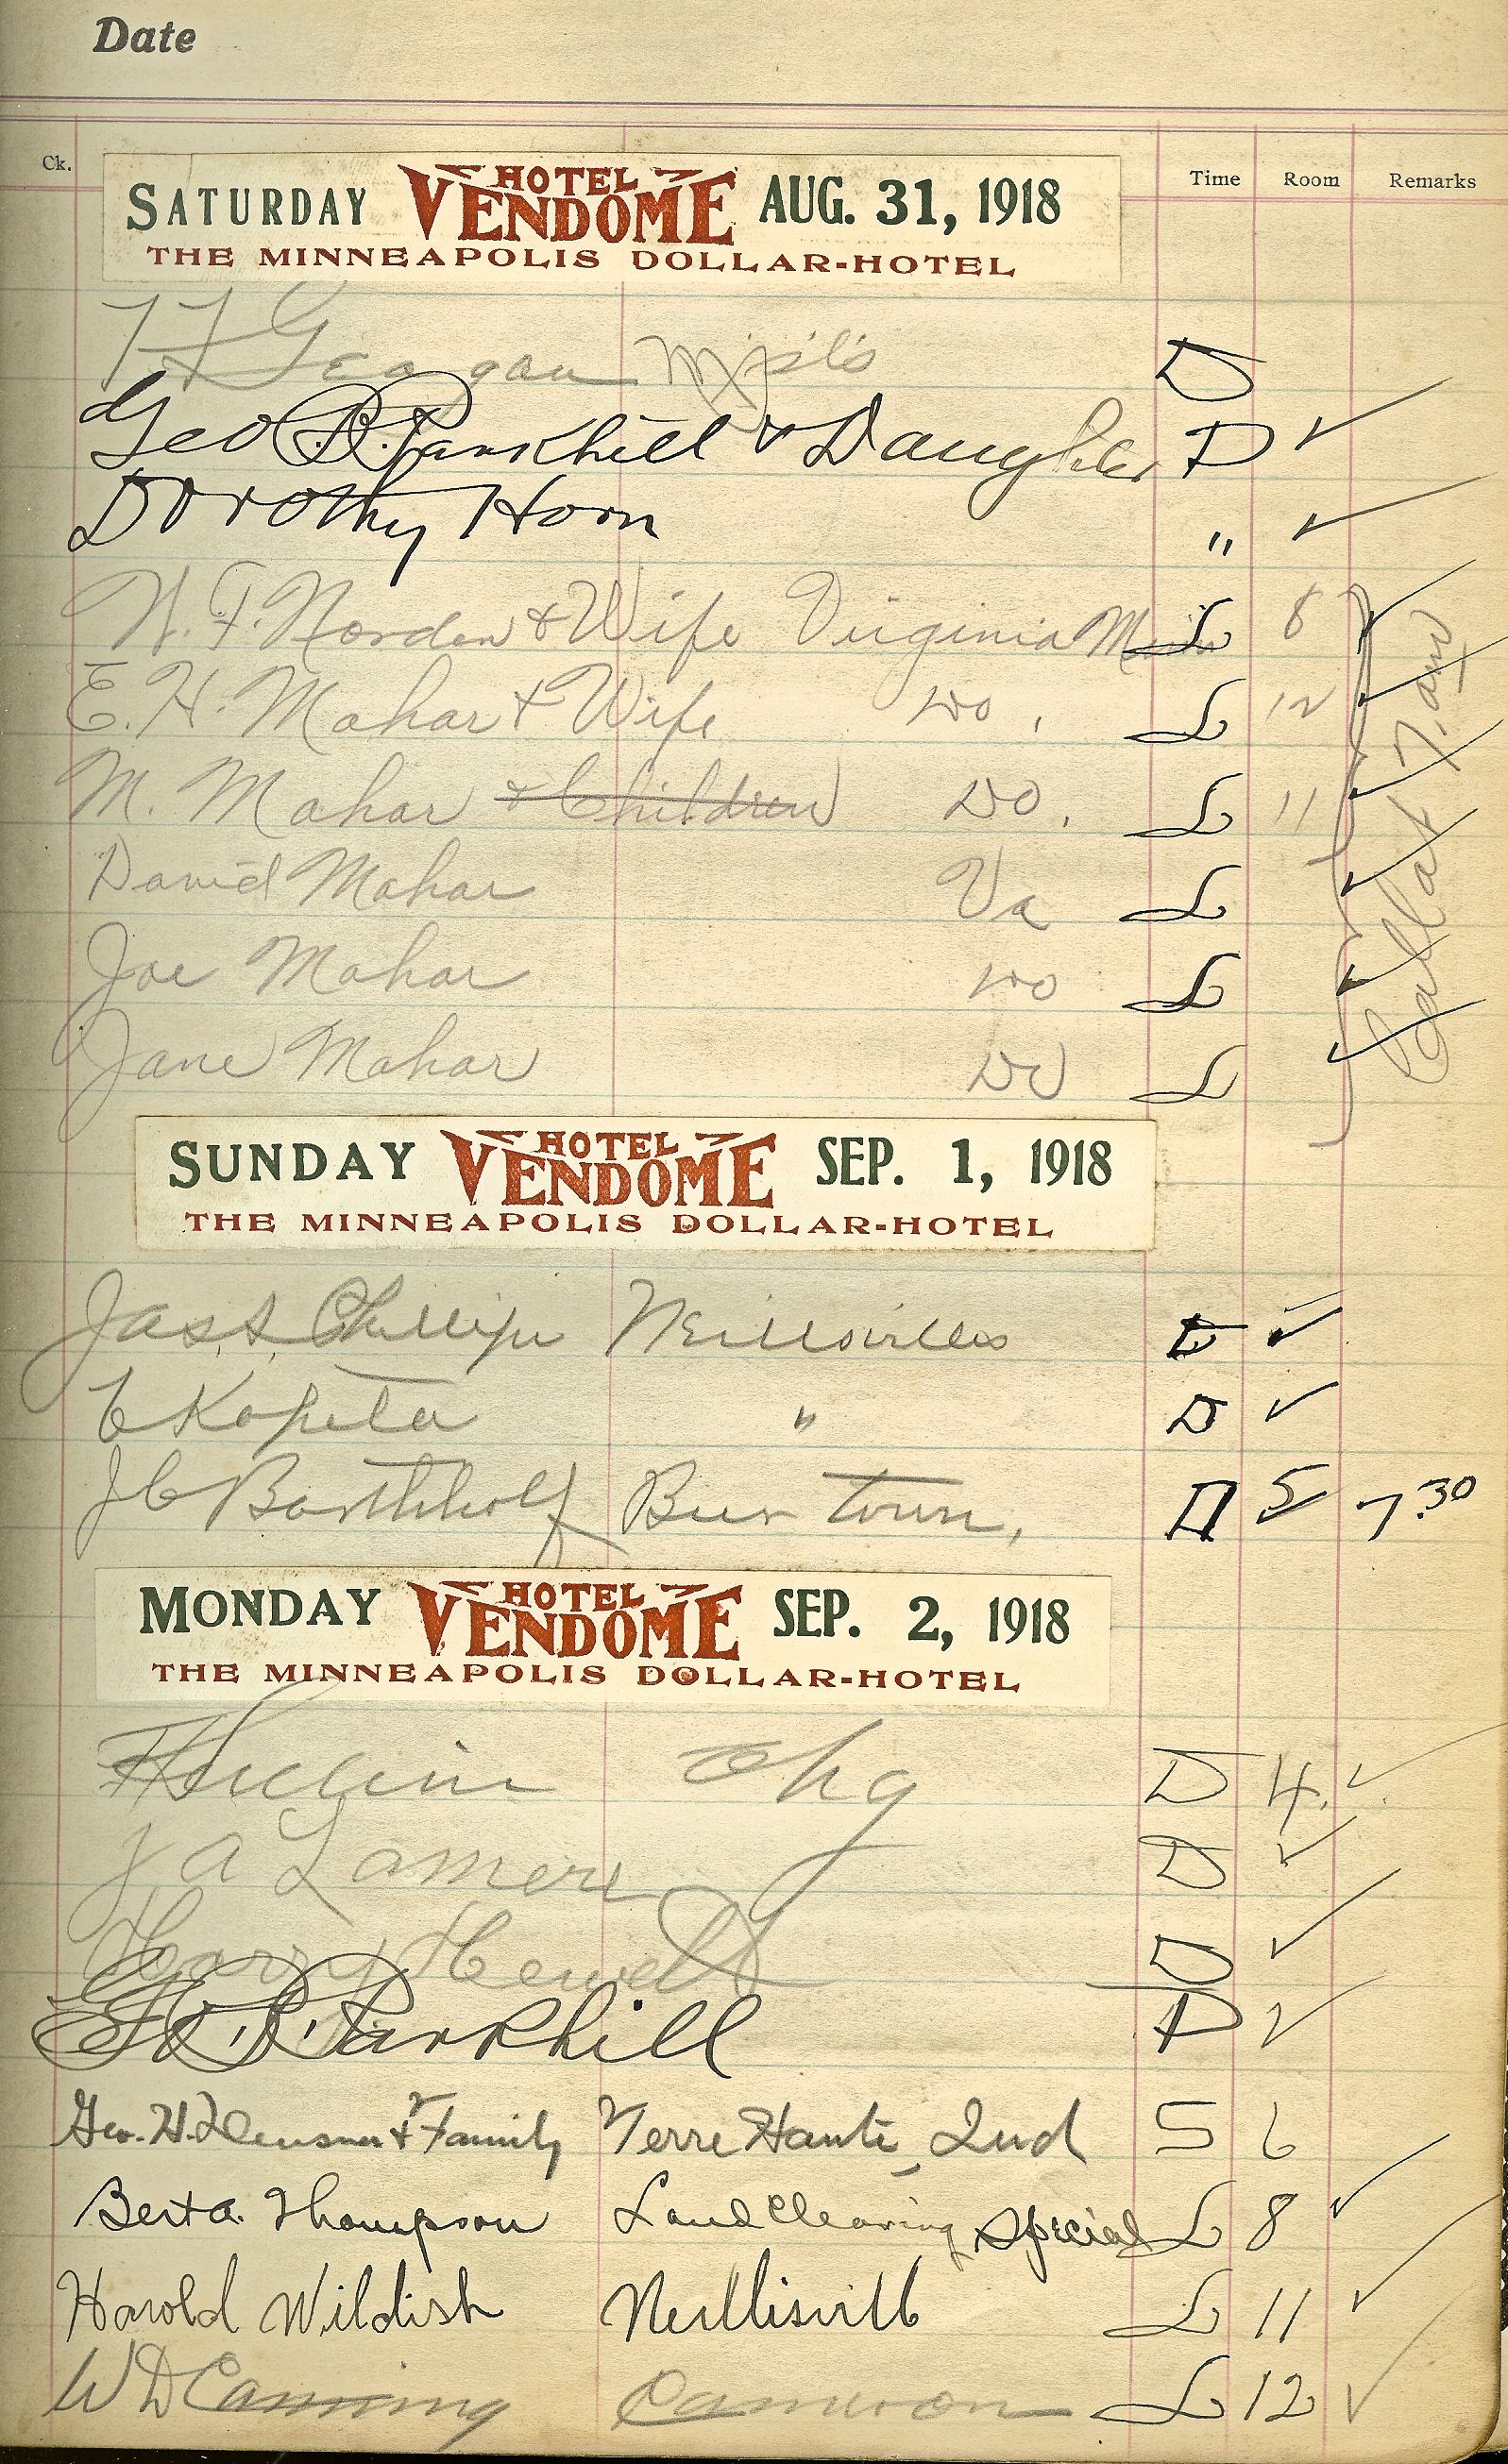 Date
Ck. Time Room Remarks
SATURDAY HOTEL VENDOME AUG. 31, 1918
THE MINNEAPOLIS DOLLAR-HOTEL
Geagan Mpls D
Geo B. Parkhill & Daughter D ✓
Dorothy Horn " ✓
N. F. Norden & Wife Virginia Minn L 8 ✓
E. H. Mahar & Wife Do. L 12 ✓
M. Mahar & Children Do. L 11 ✓
David Mahar Va L ✓
Joe Mahar Do L ✓
Jane Mahar Do L ✓
Call at 7. am
SUNDAY HOTEL VENDOME SEP. 1, 1918
THE MINNEAPOLIS DOLLAR-HOTEL
Jas. S. Neillsville ✓
Kopeta " D ✓
J C Barthholf town, D 5 7.30
MONDAY HOTEL VENDOME SEP. 2, 1918
THE MINNEAPOLIS DOLLAR-HOTEL
Chg D 4. ✓
J A Lamere D ✓
Harry Hewett D ✓
G. B. Parkhill D ✓
Geo. H. & Family Terre Haute, Ind S 6
Bert A. Thompson Land Clearing Special L 8 ✓
Harold Wildish Neillsville L 11 ✓
W D Canning Cameron L 12 ✓